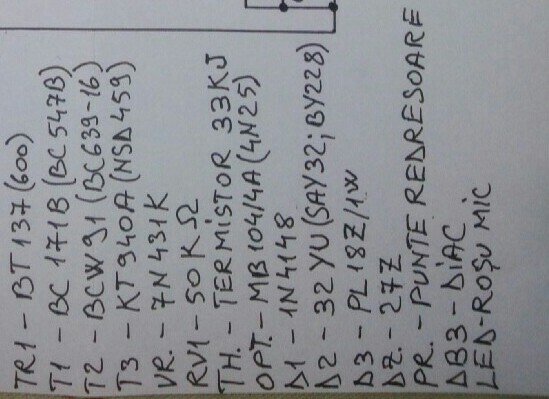 TR1 - BT137 (600)
T1 - BC 171B (BC547B)
T2 - BCW91 (BC639-16)
T3 - KT940A (NSD459)
VR. - 7N431K
RV1 - 50KΩ
TH. - TERMISTOR 33KJ
OPT. - MB104/4A (4N25)
D1 - 1N4148
D2 - 32YU (SAY32; BY228)
D3 - PL18Z/1W
DZ. - 27Z
PR. - PUNTE REDRESOARE
DB3 - DIAC
LED - ROȘU MIC